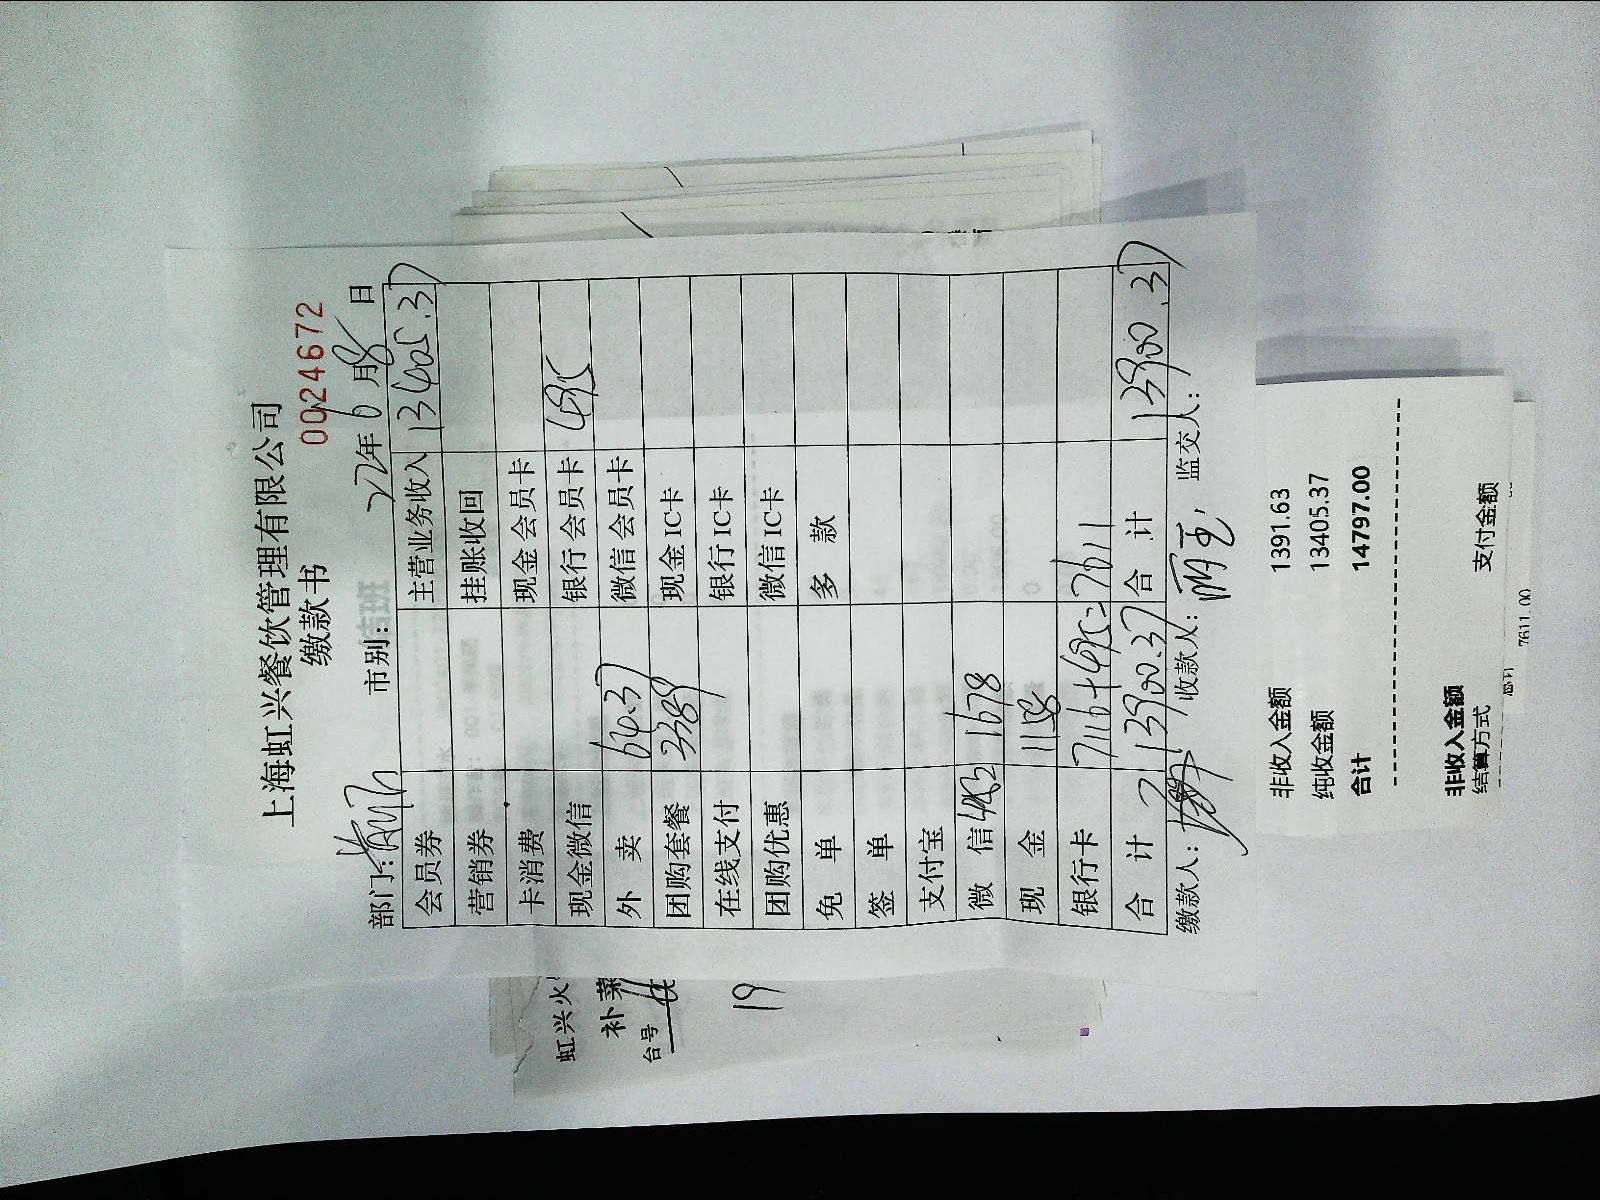 上海虹兴餐饮管理有限公司
缴款书
0024672
部门: 市别: 22年6月8日
会员券 主营业务收入 13405.37
营销券 挂账收回
卡消费 现金会员卡
现金微信 银行会员卡 495
外卖 64.37 微信会员卡
团购套餐 3389 现金IC卡
在线支付 银行IC卡
团购优惠 微信IC卡
免单 多款
签单
支付宝
微信 1678
现金 1158
银行卡 7116+495=7611
合计 13900.37 合计 13900.37
缴款人: 收款人: 监交人:
虹兴火
补菜
台号
19
非收入金额 1391.63
纯收金额 13405.37
合计 14797.00
非收入金额
结算方式 支付金额
总计 7611.00